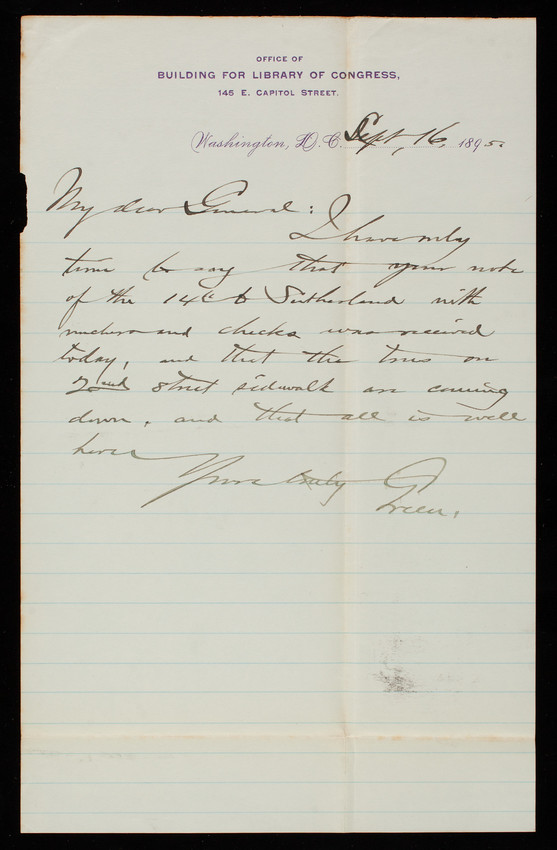 OFFICE OF
BUILDING FOR LIBRARY OF CONGRESS,
145 E. CAPITOL STREET.
Washington, D.C. Sept, 16, 1895.
My dear General:
I have only
time to say that your note
of the 14th to Sutherland with
and checks was received
today, and that the trees on
2nd street sidewalk are coming
down, and that all is well
here
Yours truly
Green.